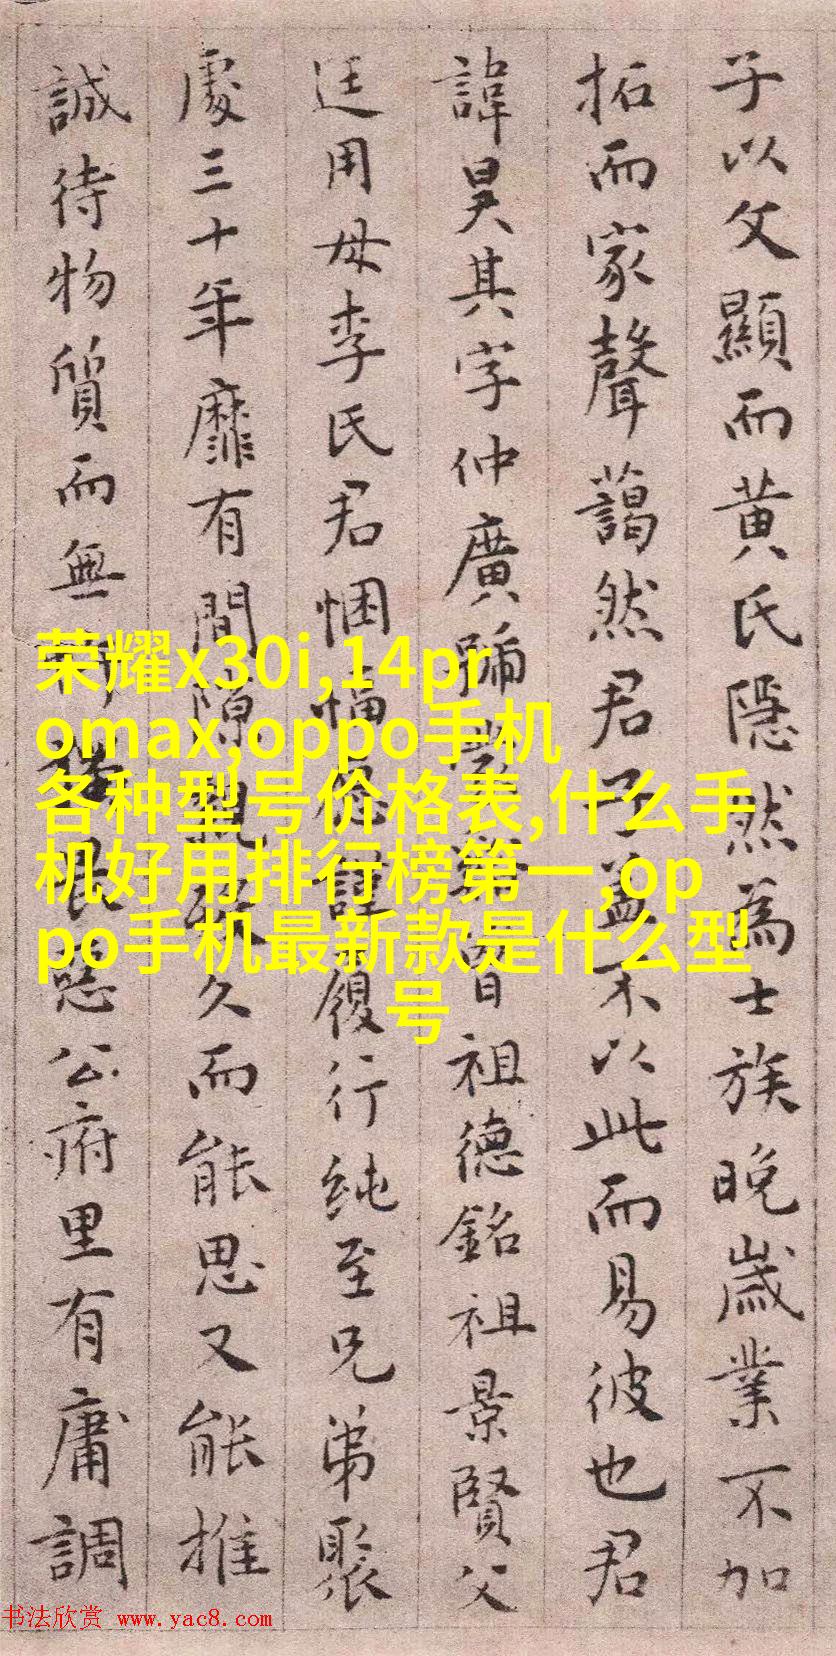 子以父顯而黃氏隱然為士族晚歲業不加
拓而家聲藹然君子蓋不以此而易彼也君
諱昊其字仲廣號 曾祖德銘祖景賢父
廷用母李氏君悃愊 謹履行純至兄弟聚
處三十年靡有間隙親 久而能思又能推
誠待物質而無 公府里有庸調
荣耀x30i,14pr
omax,oppo手机
各种型号价格表,什么手
机好用排行榜第一,op
po手机最新款是什么型
号
书法欣赏 www.yac8.com